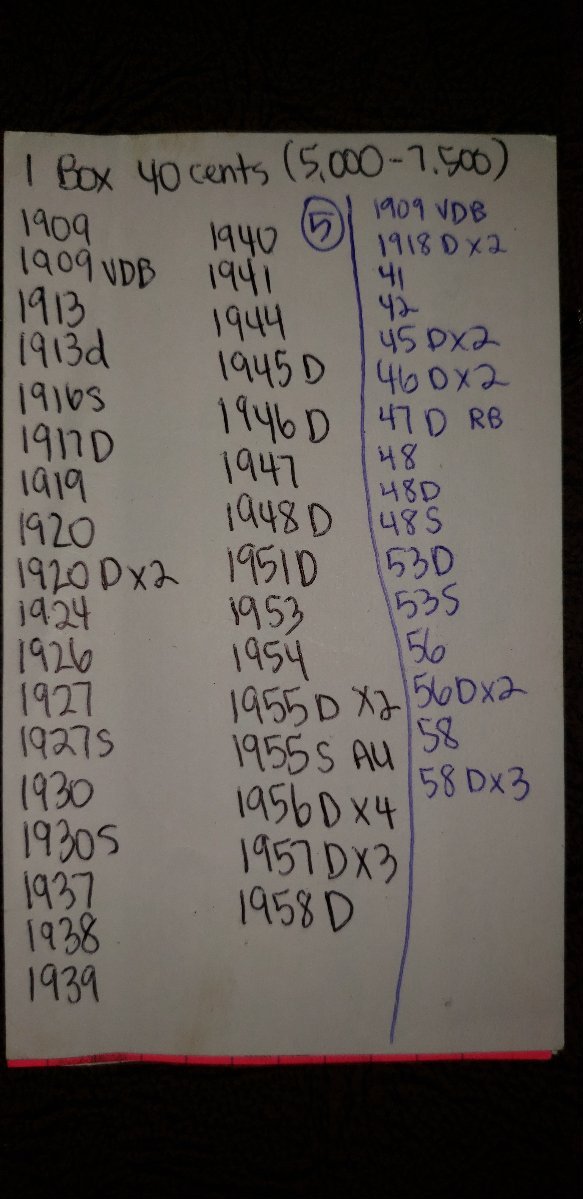 1 Box 40 cents (5,000-7,500)
1909
1909 VDB
1913
1913d
1916s
1917D
1919
1920
1920 D x2
1924
1926
1927
1927s
1930
1930S
1937
1938
1939
1940
1941
1944
1945 D
1946 D
1947
1948 D
1951D
1953
1954
1955D x2
1955s AU
1956D x4
1957D x3
1958 D
5
1909 VDB
1918 D x2
41
42
45 Dx2
46 Dx2
47 D RB
48
48D
48S
53D
53S
56
56Dx2
58
58 Dx3